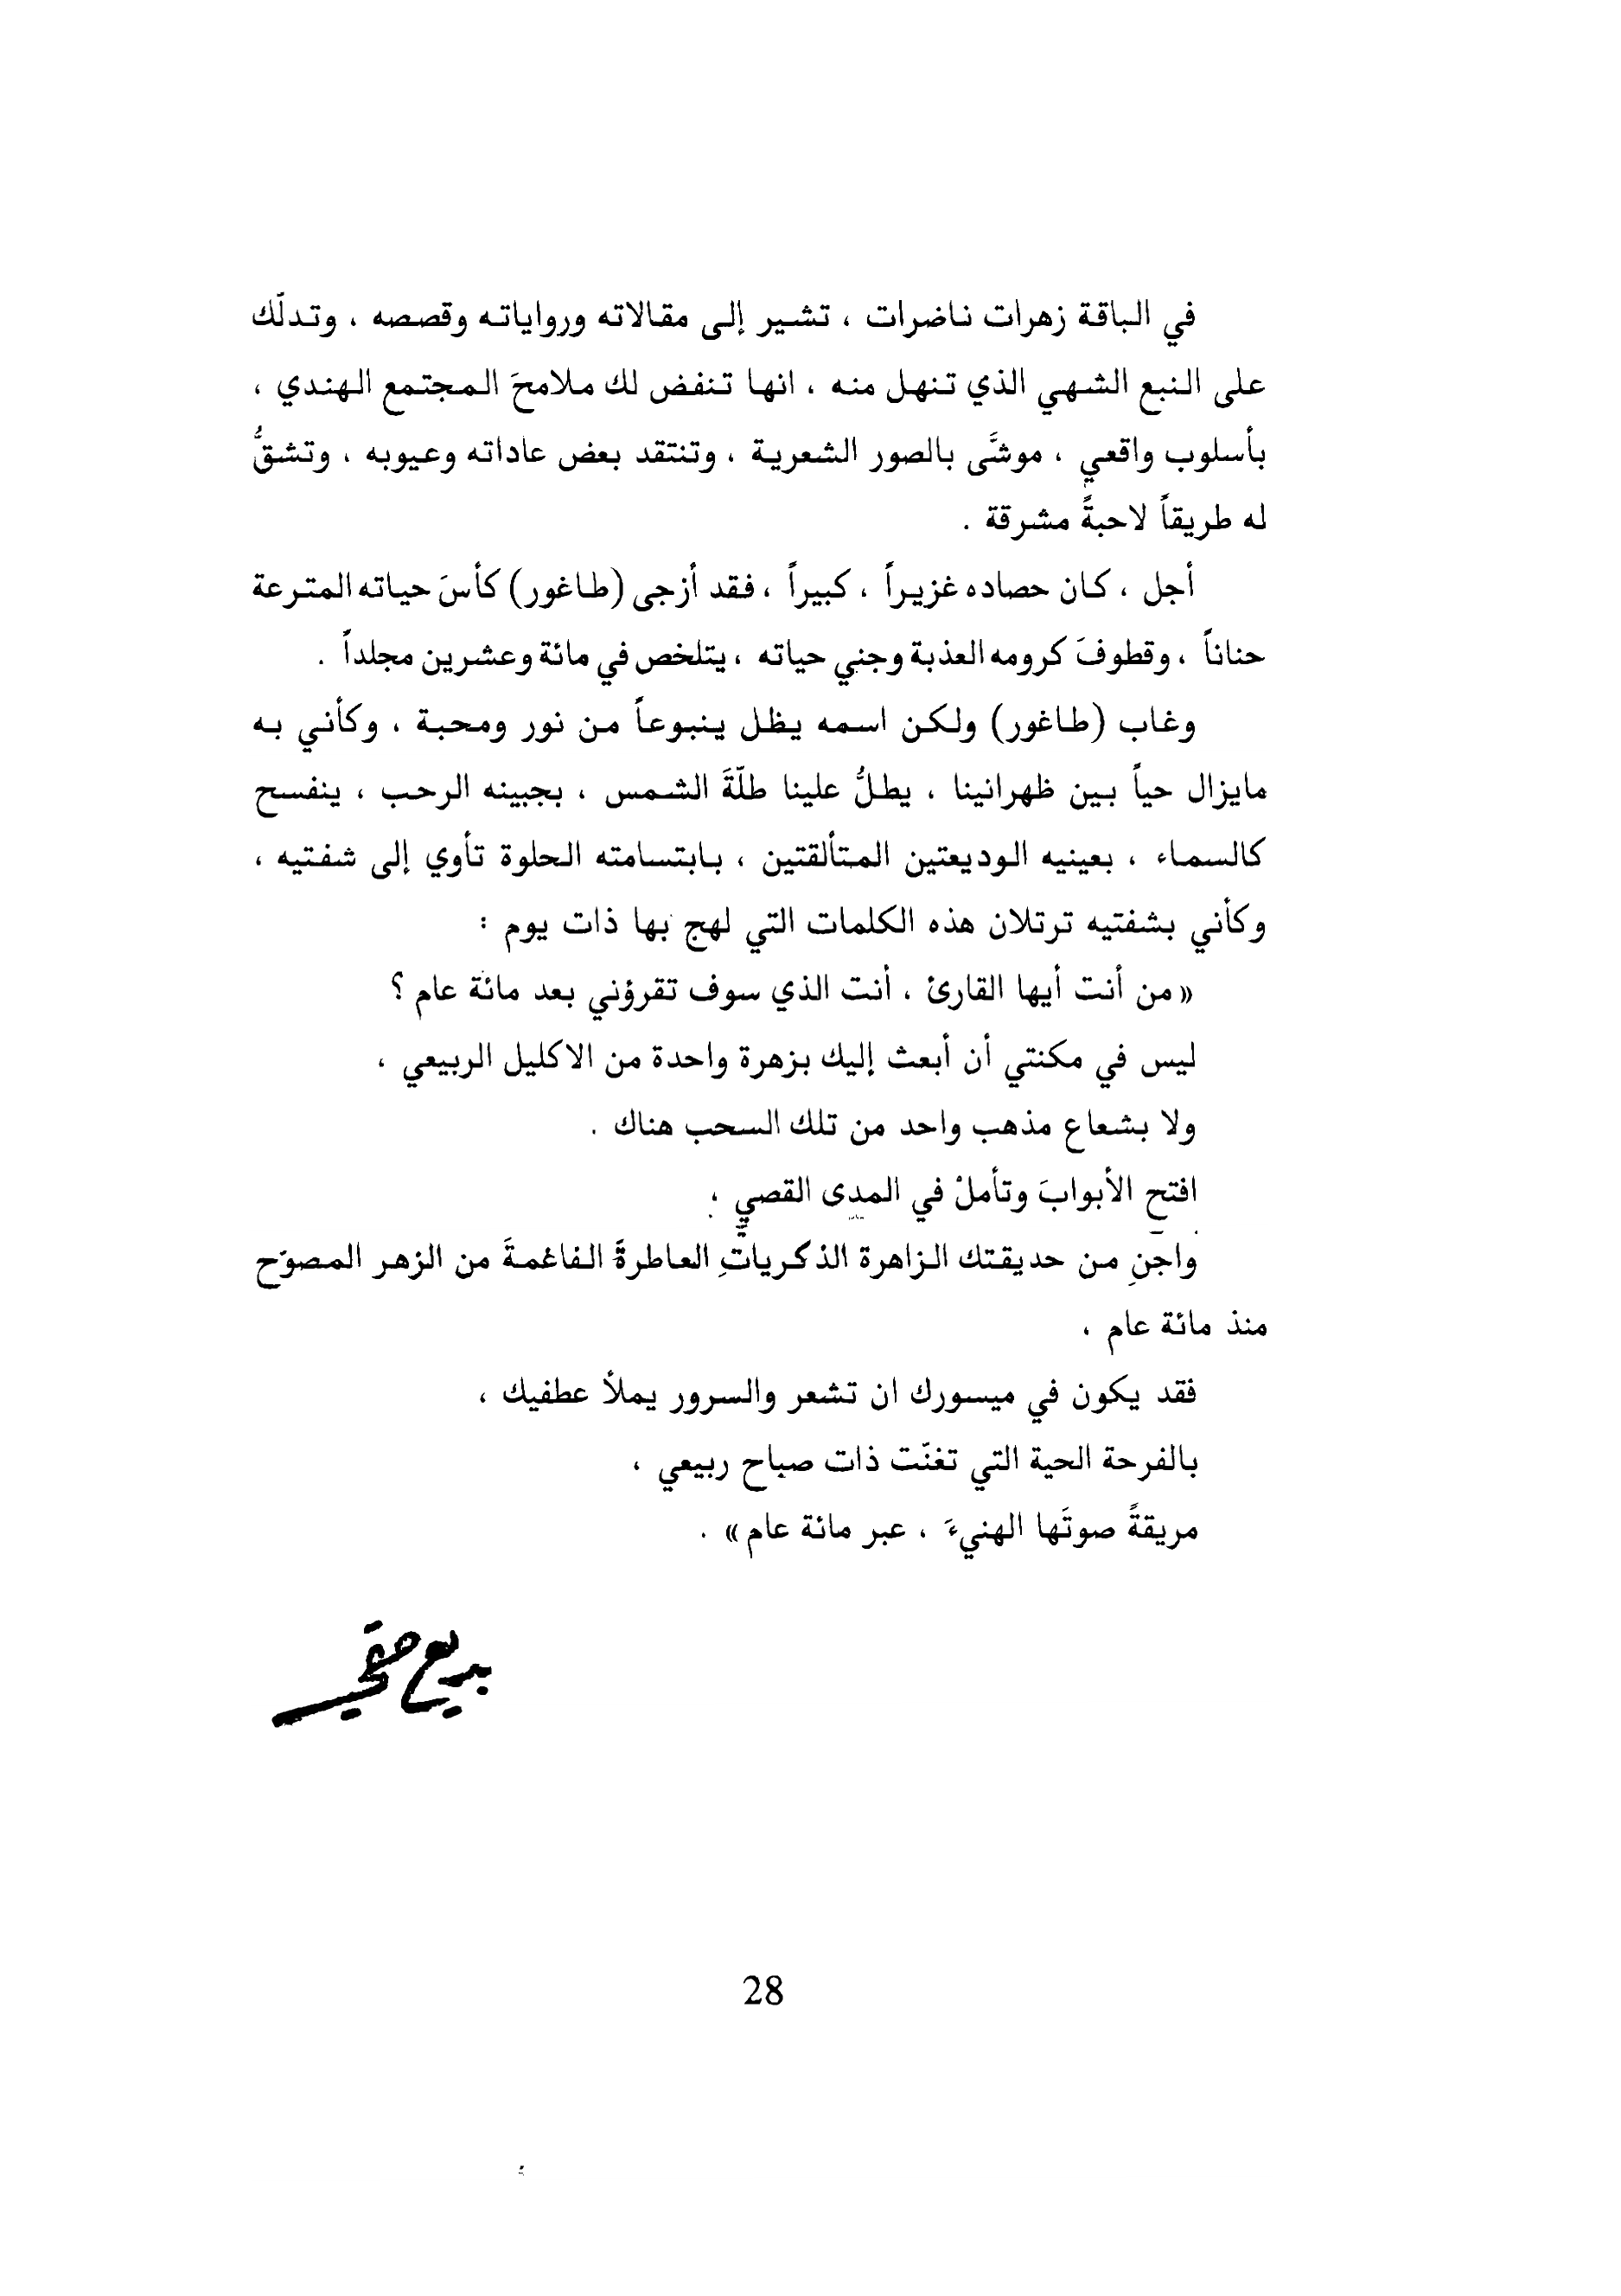 في الباقة زهرات ناضرات ، تشير إلى مقالاته ورواياته وقصصه ، وتدلّك
على النبع الشهي الذي تنهل منه ، انها تنفض لك ملامحَ المجتمع الهندي ،
بأسلوب واقعي ، موشَّى بالصور الشعرية ، وتنتقد بعض عاداته وعيوبه ، وتشقُّ
له طريقاً لاحبةً مشرقة .
أجل ، كان حصاده غزيراً ، كبيراً ، فقد أزجى (طاغور) كأسَ حياته المترعة
حناناً ، وقطوفَ كرومه العذبة وجني حياته ، يتلخص في مائة وعشرين مجلداً .
وغاب (طاغور) ولكن اسمه يظل ينبوعاً من نور ومحبة ، وكأني به
مايزال حياً بين ظهرانينا ، يطلُّ علينا طلّةَ الشمس ، بجبينه الرحب ، ينفسح
كالسماء ، بعينيه الوديعتين المتألقتين ، بابتسامته الحلوة تأوي إلى شفتيه ،
وكأني بشفتيه ترتلان هذه الكلمات التي لهج بها ذات يوم :
«من أنت أيها القارئ ، أنت الذي سوف تقرؤني بعد مائة عام ؟
ليس في مكنتي أن أبعث إليك بزهرة واحدة من الاكليل الربيعي ،
ولا بشعاع مذهب واحد من تلك السحب هناك .
افتح الأبوابَ وتأملْ في المدى القصي ،
واجنِ من حديقتك الزاهرة الذكرياتِ العاطرةَ الفاغمةَ من الزهر المصوّح
منذ مائة عام ،
فقد يكون في ميسورك ان تشعر والسرور يملأ عطفيك ،
بالفرحة الحية التي تغنّت ذات صباح ربيعي ،
مريقةً صوتَها الهنيءَ ، عبر مائة عام» .
بديع حقي
28